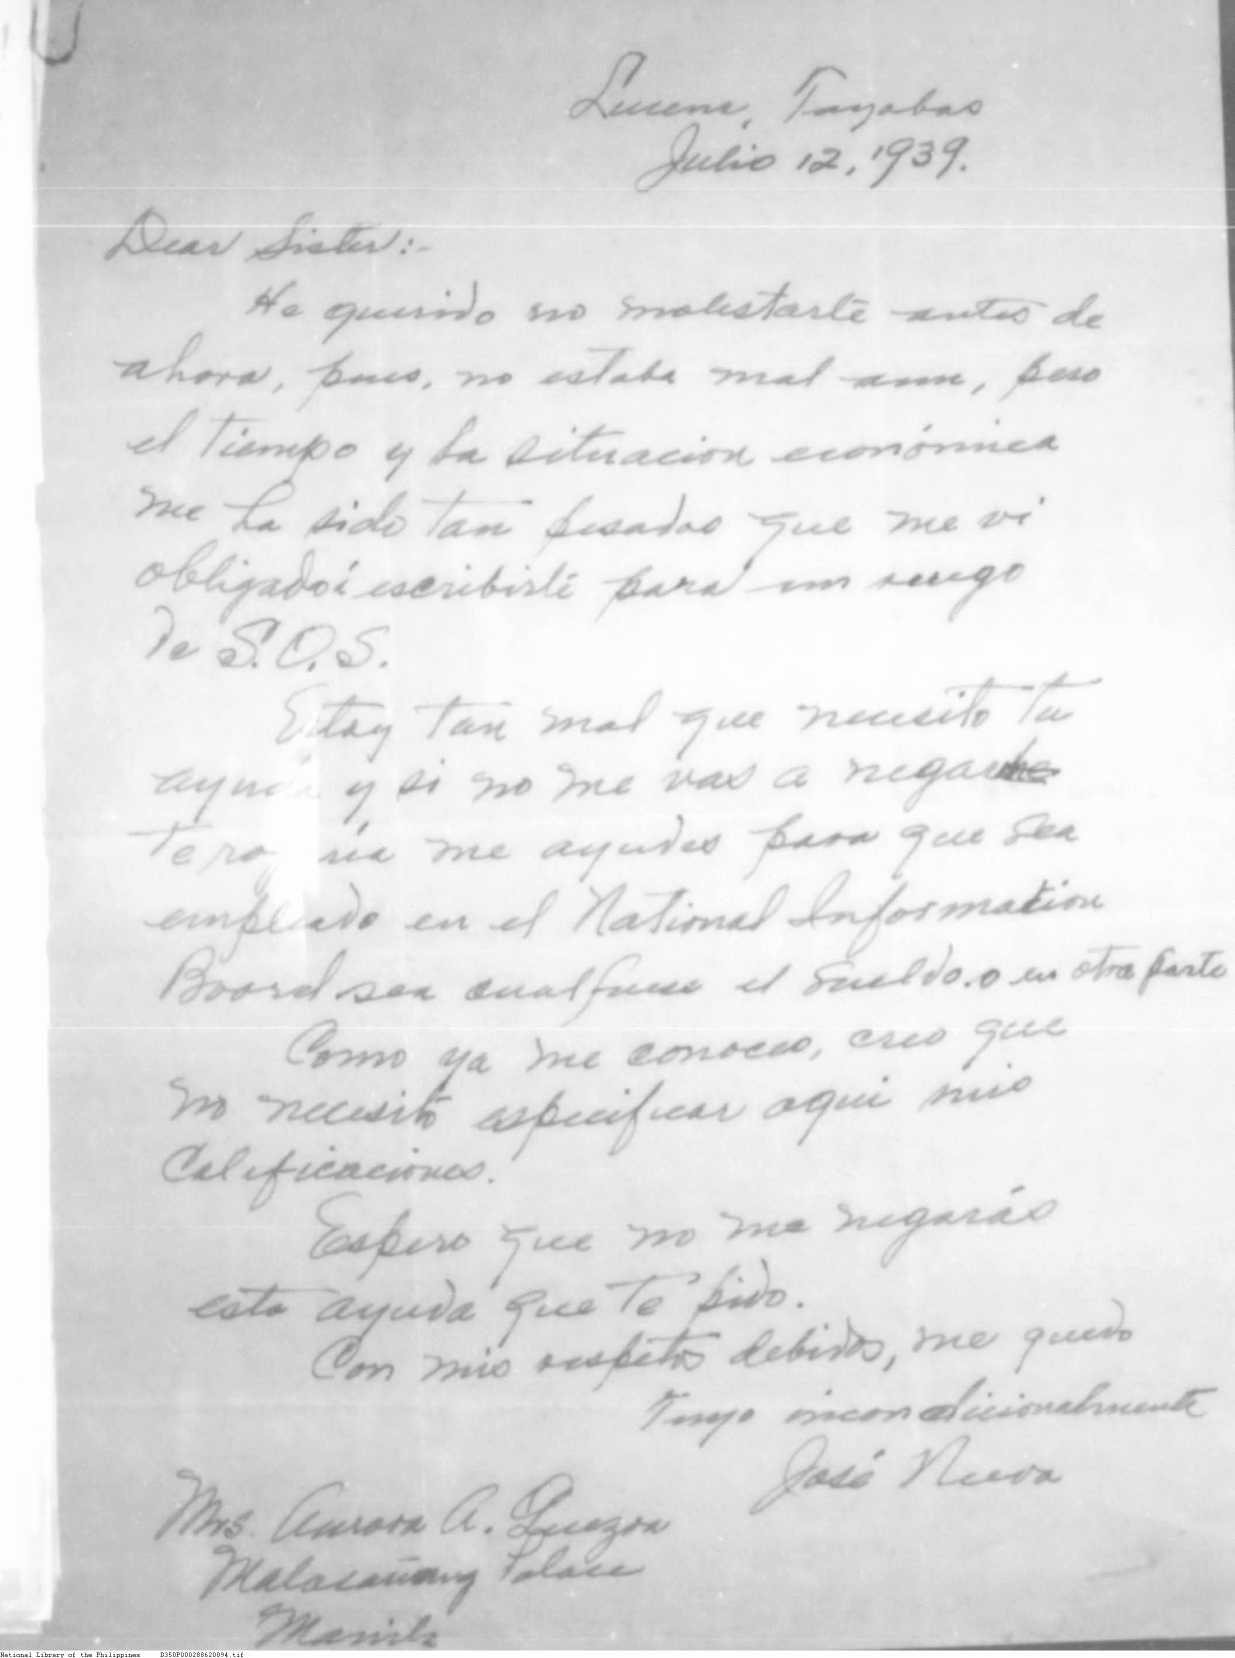 Lucena, Tayabas
Julio 12, 1939.
Dear Sister:-
He querido no molestarte antes de
ahora, pues, no estaba mal aun, pero
el tiempo y la situacion económica
me ha sido tan pesados que me vi
obligado á escribirte para un ruego
de S.O.S.
Estoy tan mal que necesito tu
ayuda y si no me vas a negar
te rogaría me ayudes para que sea
empleado en el National Information
Board sea cual fuese el sueldo. o en otra parte
Como ya me conoces, creo que
no necesito especificar aqui mis
Calificaciones.
Espero que no me negarás
esta ayuda que te pido.
Con mis respetos debidos, me quedo
Tuyo incondicionalmente
José Nueva
Mrs. Aurora A. Quezon
Malacañang Palace
Manila
National Library of the Philippines D350P000288620894.tif